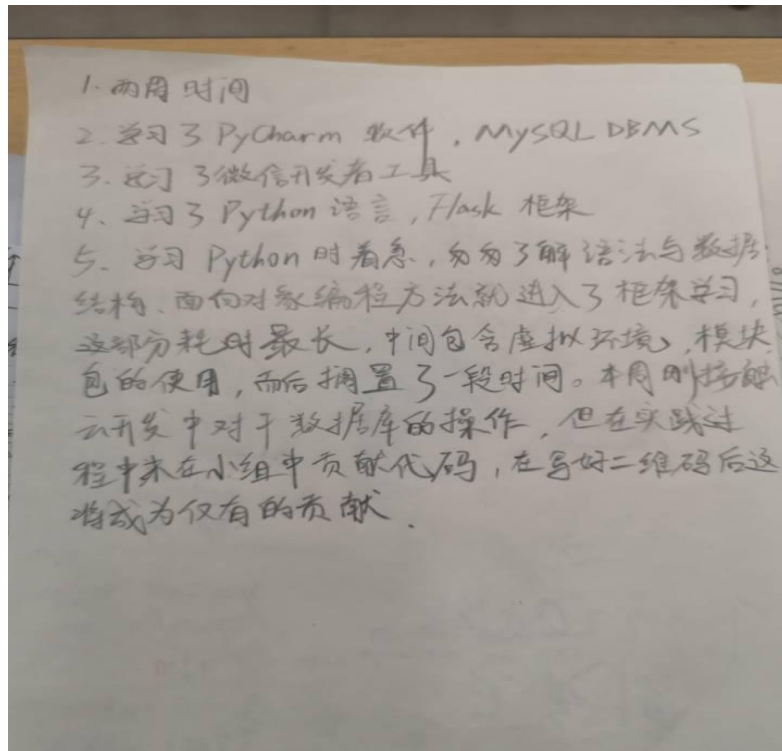 1. 两周时间
2. 学习了PyCharm 软件, MySQL DBMS
3. 学习了微信开发者工具
4. 学习了 Python 语言, Flask 框架
5. 学习 Python 时着急, 匆匆了解语法与数据
结构、面向对象编程方法就进入了框架学习,
这部分耗时最长, 中间包含虚拟环境, 模块
包的使用, 而后搁置了一段时间。本周刚接触
云开发中对于数据库的操作, 但在实践过
程中未在小组中贡献代码, 在写好二维码后这
将成为仅有的贡献.